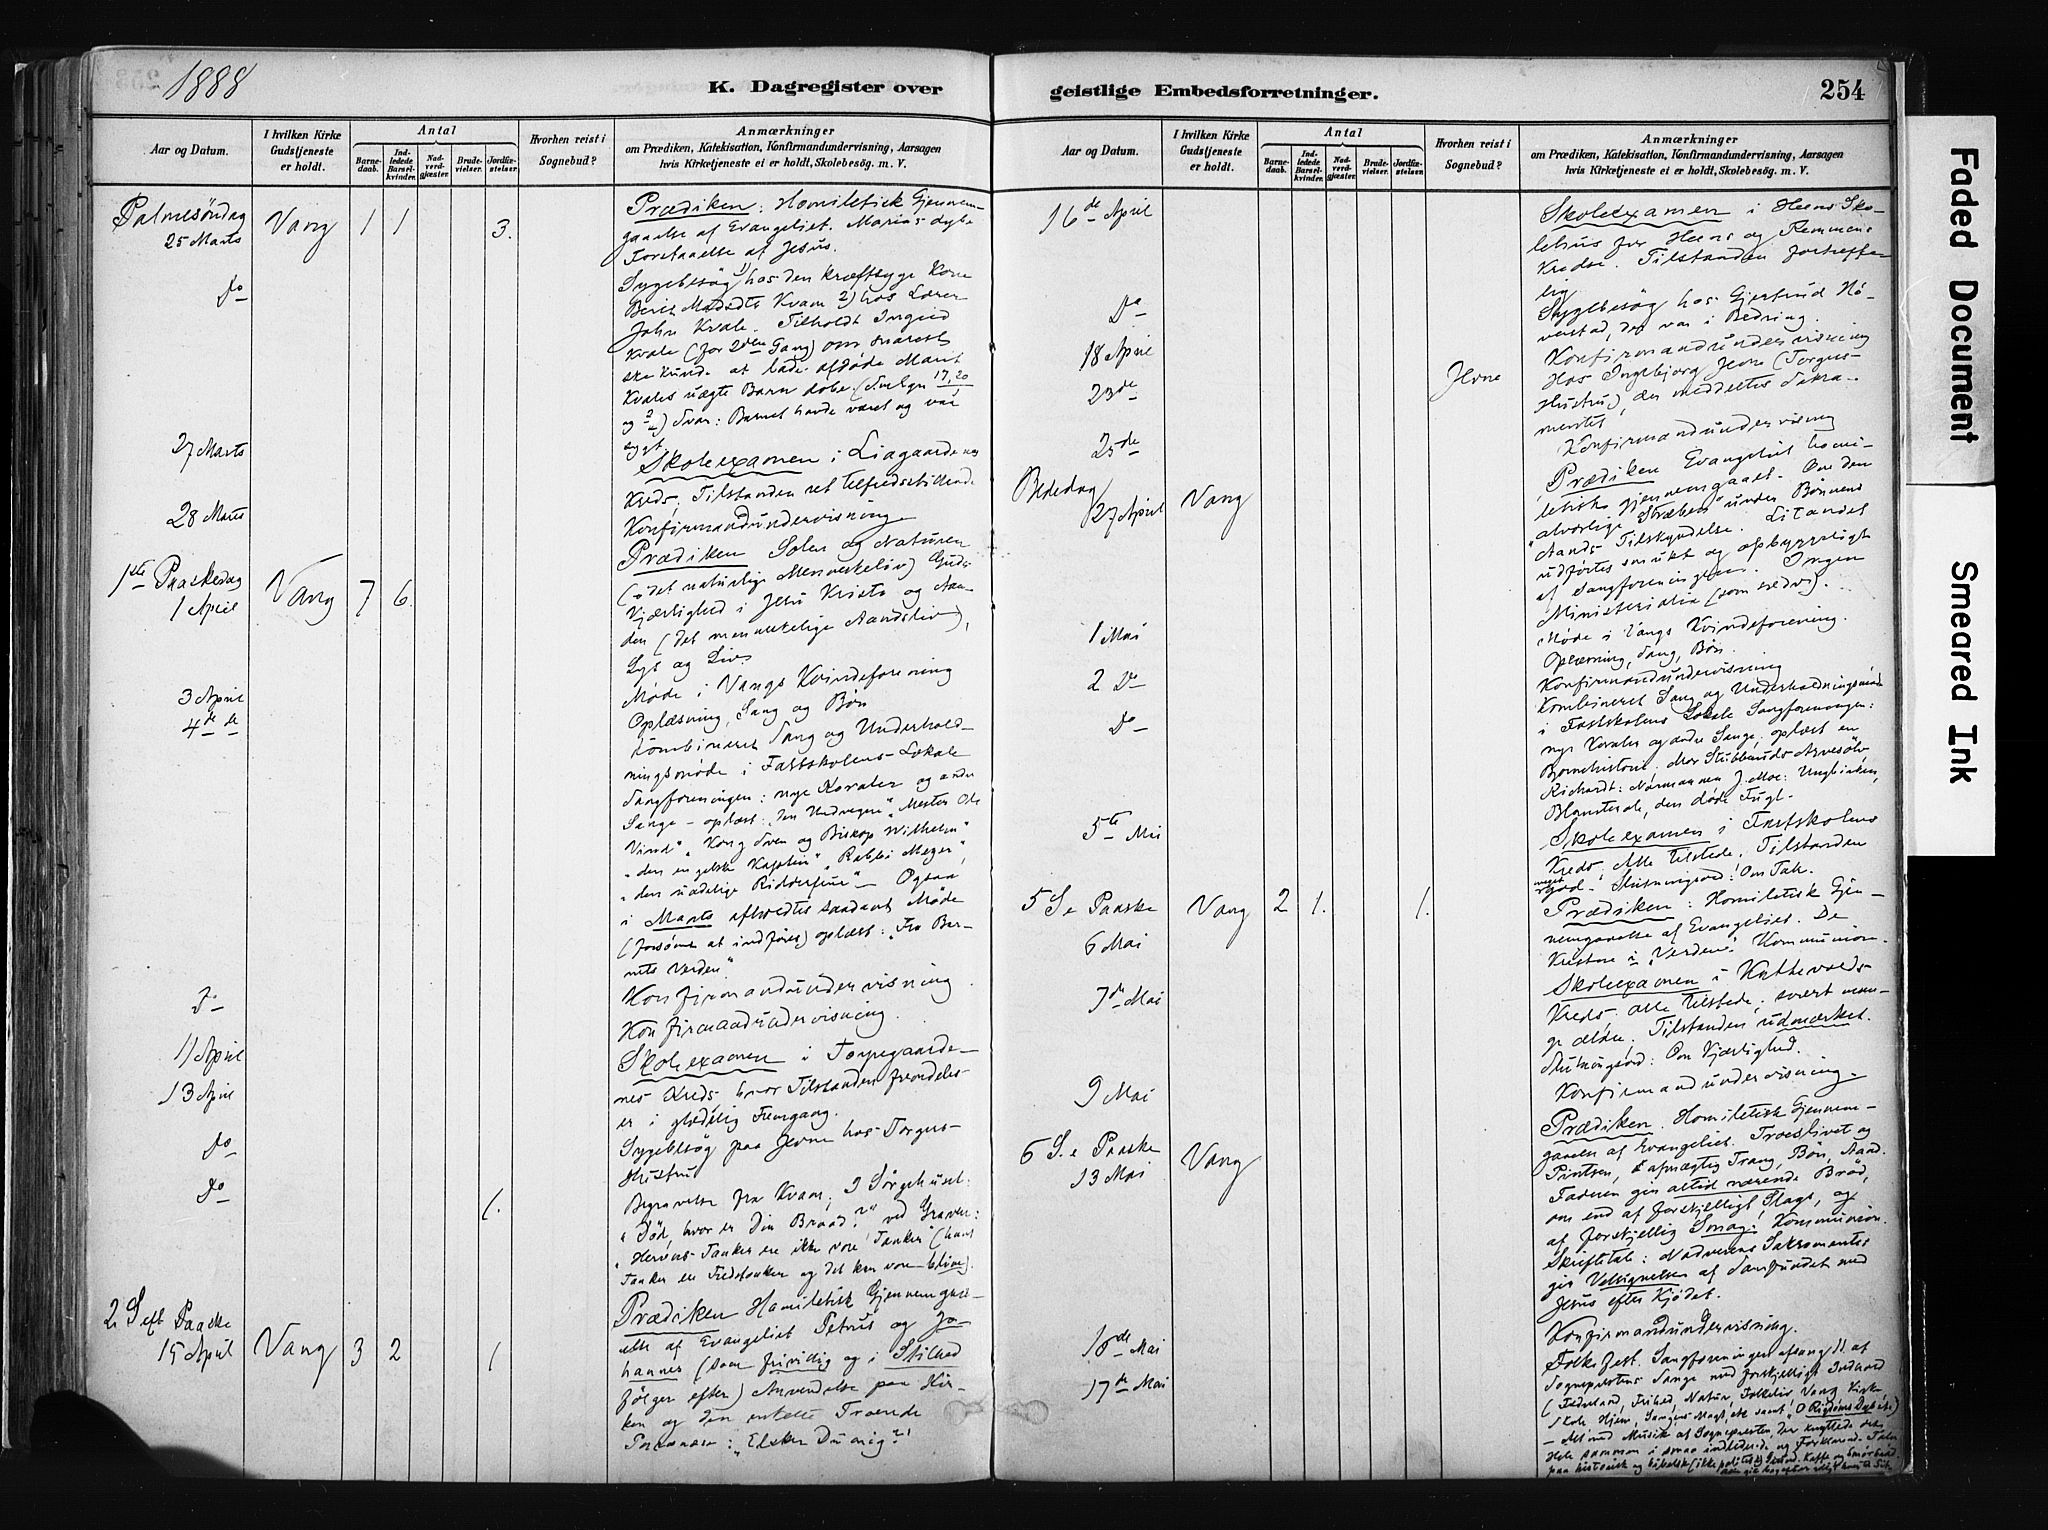 1888
K. Dagregister over
geistlige Embedsforretninger.
254
Aar og Datum.
I hvilken Kirke
Gudstjeneste
er holdt.
Antal
Barne-
daab.
Ind-
ledede
Barsel-
kvinder.
Nad-
verd-
gjæster.
Brude-
vielser.
Jordfæ-
stelser.
Hvorhen reist i
Sognebud?
Anmærkninger
om Prædiken, Katekisation, Konfirmandundervisning, Aarsagen
hvis Kirketjeneste ei er holdt, Skolebesög. m. V.
Palmesöndag
25 Marts
Vang 1 1 3.
Prædiken: Homiletisk Gjennem-
gaaelse af Evangeliet. Marias dybe
Forstaaelse af Jesus.
Do
Sygebesög 1) hos den kræftsyge Kone
Berit Kvam 2) hos Lærer
John Kvale. Tilholdt Ingrid
Kvale (for 2den Gang) om snarest
ske kunde at lade afdøde Marit
Kvales uægte Barn døbe. 17, 20
og Svar: Barnet havde været og var
sygt.
27 Marts
Skoleexamen i Liagaardenes
Kreds, Tilstanden ret tilfredsstillende
28 Marts
Konfirmandundervisning
1ste Paaskedag
1 April
Vang 7 6.
Prædiken Solen og Naturen
(det naturlige Menneskeliv) Guds
Kjærlighed i Jesu Kristo og Aan-
den (det menneskelige Aandsliv),
Lys og Liv.
3 April
Møde i Vangs Kvindeforening
Oplæsning, Sang og Bön
4de de
Kombineret Sang og Underhold-
ningsmøde i Fastskolens Lokale
Sangforeningen: nye Koraler og andre
Sange – oplæst: Mester Ole
Vind", "Kong Sven og Biskop Wilhelm"
"den engelske Kaptein" "Rabbi Meyer",
"den uadelige Ridderfrue" – Ogsaa
i Marts afholdtes saadant Møde
(forsøm at indføres) oplæst: "Fra Bar-
nets Verden".
Do
Konfirmandundervisning
11 April
Konfirmandundervisning.
13 April
Skoleexamen i Torpegaarde-
nes Kreds, hvor Tilstanden fremdeles
er i glædelig Fremgang.
Do
Sygebesög paa Jevne hos Torgus-
Hustru
Do
1.
Begravelse fra Kvam; I Sørgehuset:
"Död, hvor er Din Braad?" ved Graven:
"Herrens Tanker ere ikke vore Tanker" (hans
Tanker er Fredstanker og det kan vore blive).
2 S eft Paaske
15 April
Vang 3 2 1
Prædiken Homiletisk Gjennemgaa-
else af Evangeliet Petrus og Jo-
hannes (som frivillig og i Stilhed
følger efter) Anvendelse paa Kir-
ken og den enkelte Troende
"Elsker Du mig?"
Aar og Datum.
I hvilken Kirke
Gudstjeneste
er holdt.
Antal
Barne-
daab.
Ind-
ledede
Barsel-
kvinder.
Nad-
verd-
gjæster.
Brude-
vielser.
Jordfæ-
stelser.
Hvorhen reist i
Sognebud?
Anmærkninger
om Prædiken, Katekisation, Konfirmandundervisning, Aarsagen
hvis Kirketjeneste ei er holdt, Skolebesög. m. V.
16de April
Skoleexamen i Heens Sko-
lehus for Heens og Remmens
Kredse. Tilstanden fortreffe-
lig
Do
Sygebesög hos Gjertrud Nö-
verstad, der var i Bedring.
18 April
Konfirmandundervisning
23de
Jevne
Hos Ingebjørg Jevne (Torgus-
Hustru), der meddeltes Sakra-
mentet
25de
Konfirmandundervisning
Bededag
27 April
Vang
Prædiken Evangeliet homi-
letisk gjennemgaaet. Om den
alvorlige Stræben under Bönnens
Aands Tilskyndelse. Litaniet
udførtes smukt og opbyggeligt
af Sangforeningen. Ingen
Ministerialia (som sedv).
1 Mai
Møde i Vangs Kvindeforening.
Oplæsning, Sang, Bön.
2 Do
Konfirmandundervisning
Do
Kombineret Sang og Underholdningsmøde
i Fastskolens Lokale Sangforeningen:
nye Koraler og andre Sange, oplæst en
Bjørnehistorie. Mor Stubberuds Arvesölv.
Richardt: Normannen J. Moe: Ungbirken,
Blomsterale, den døde Fugl.
5te Mai
Skoleexamen i Fastskolens
Kreds. Alle tilstede. Tilstanden
meget god. Slutningsord: Om Tak.
5 S e Paaske
6 Mai
Vang 2 1. 1.
Prædiken: Homiletisk Gjen-
nemgaaelse af Evangeliet. De
Kristne i "Verden". Kommunion.
7de Mai
Skoleexamen i Kattevolds-
Kreds. alle tilstede; svært man-
ge ældre. Tilstanden udmærket.
Slutningsord: Om Kjærlighed.
9 Mai
Konfirmandundervisning.
6 S. e Paaske
13 Mai
Vang
Prædiken. Homiletisk Gjennem-
gaaelse af Evangeliet. Troeslivet og
Pintsen, Trang, Bön, Aand.
Faderen giv altid nærende Bröd,
om end af forskjelligt Slags, og
af forskjellig Smag. Kommunion.
Skriftetale: Nadverens Sakramentes
giv Velsignelsen af Samfundet med
Jesus efter Kjödet.
16de Mai
Konfirmandundervisning.
17de Mai
Folkefest. Sangforeningen afsang 11 af
Sognepræstens Sange med forskjelligt Indhold
(Fædreland, Frihed, Natur, Folkeliv Vang Kirke
Skole Hjem, Sangens Magt, etc samt
– Alt med Musik af Sognepresten, der knyttede det
Hele sammen i smaa indledende og Forklarende Taler
paa historisk og bibelsk (ikke politisk) Grund. Kaffe og Smörbröd
Faded Document
Smeared Ink